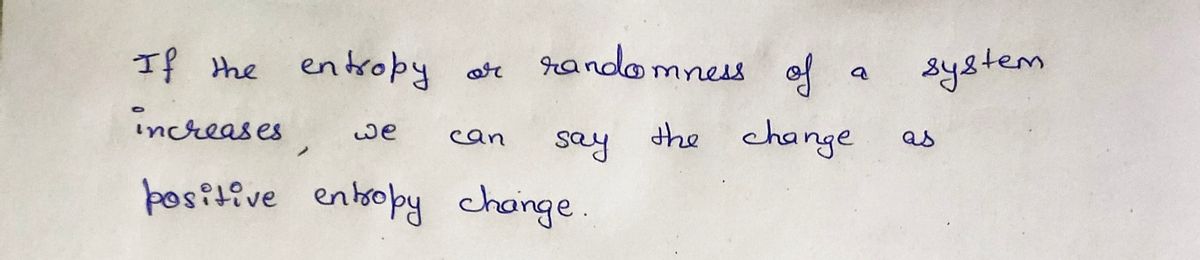 If the entropy or randomness of a system
increases, we can say the change as
positive entropy change.